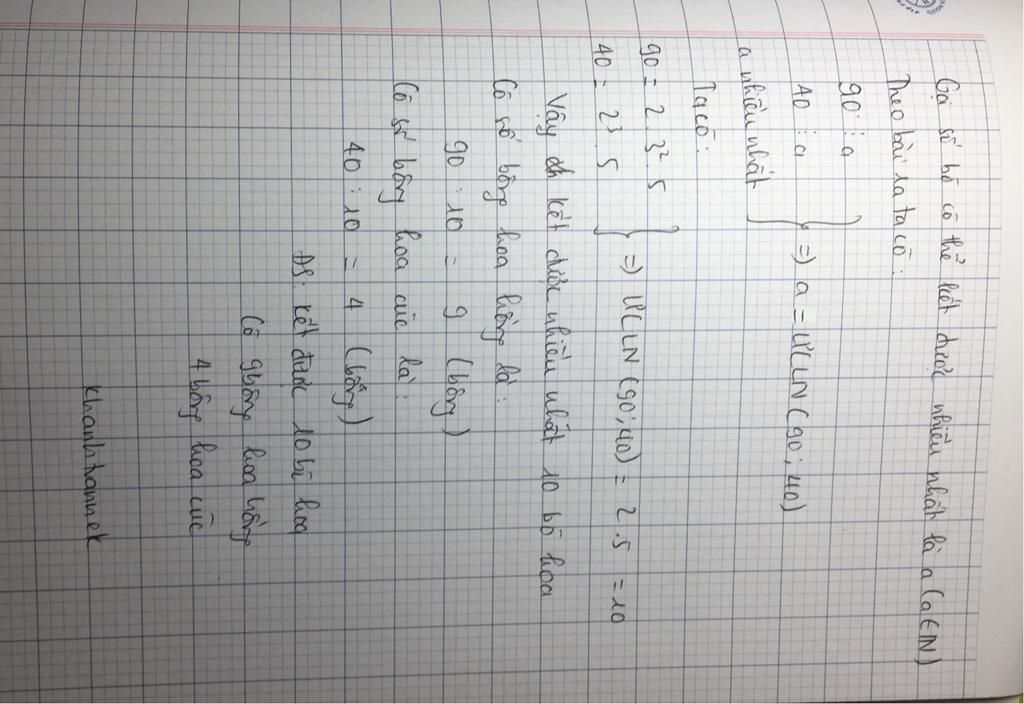 Gọi số bó có thể kết được nhiều nhất là a (a ∈ IN)
Theo bài ra ta có:
90 ⋮ a
40 ⋮ a } => a = ƯCLN (90; 40)
a nhiều nhất
Ta có:
90 = 2 . 3² . 5
40 = 2³ . 5 } => ƯCLN (90; 40) = 2 . 5 = 10
Vậy kết được nhiều nhất 10 bó hoa
Có số bông hoa hồng là:
90 : 10 = 9 (bông)
Có số bông hoa cúc là:
40 : 10 = 4 (bông)
ĐS: kết được 10 bó hoa
Có 9 bông hoa hồng
4 bông hoa cúc
khanhtrannek